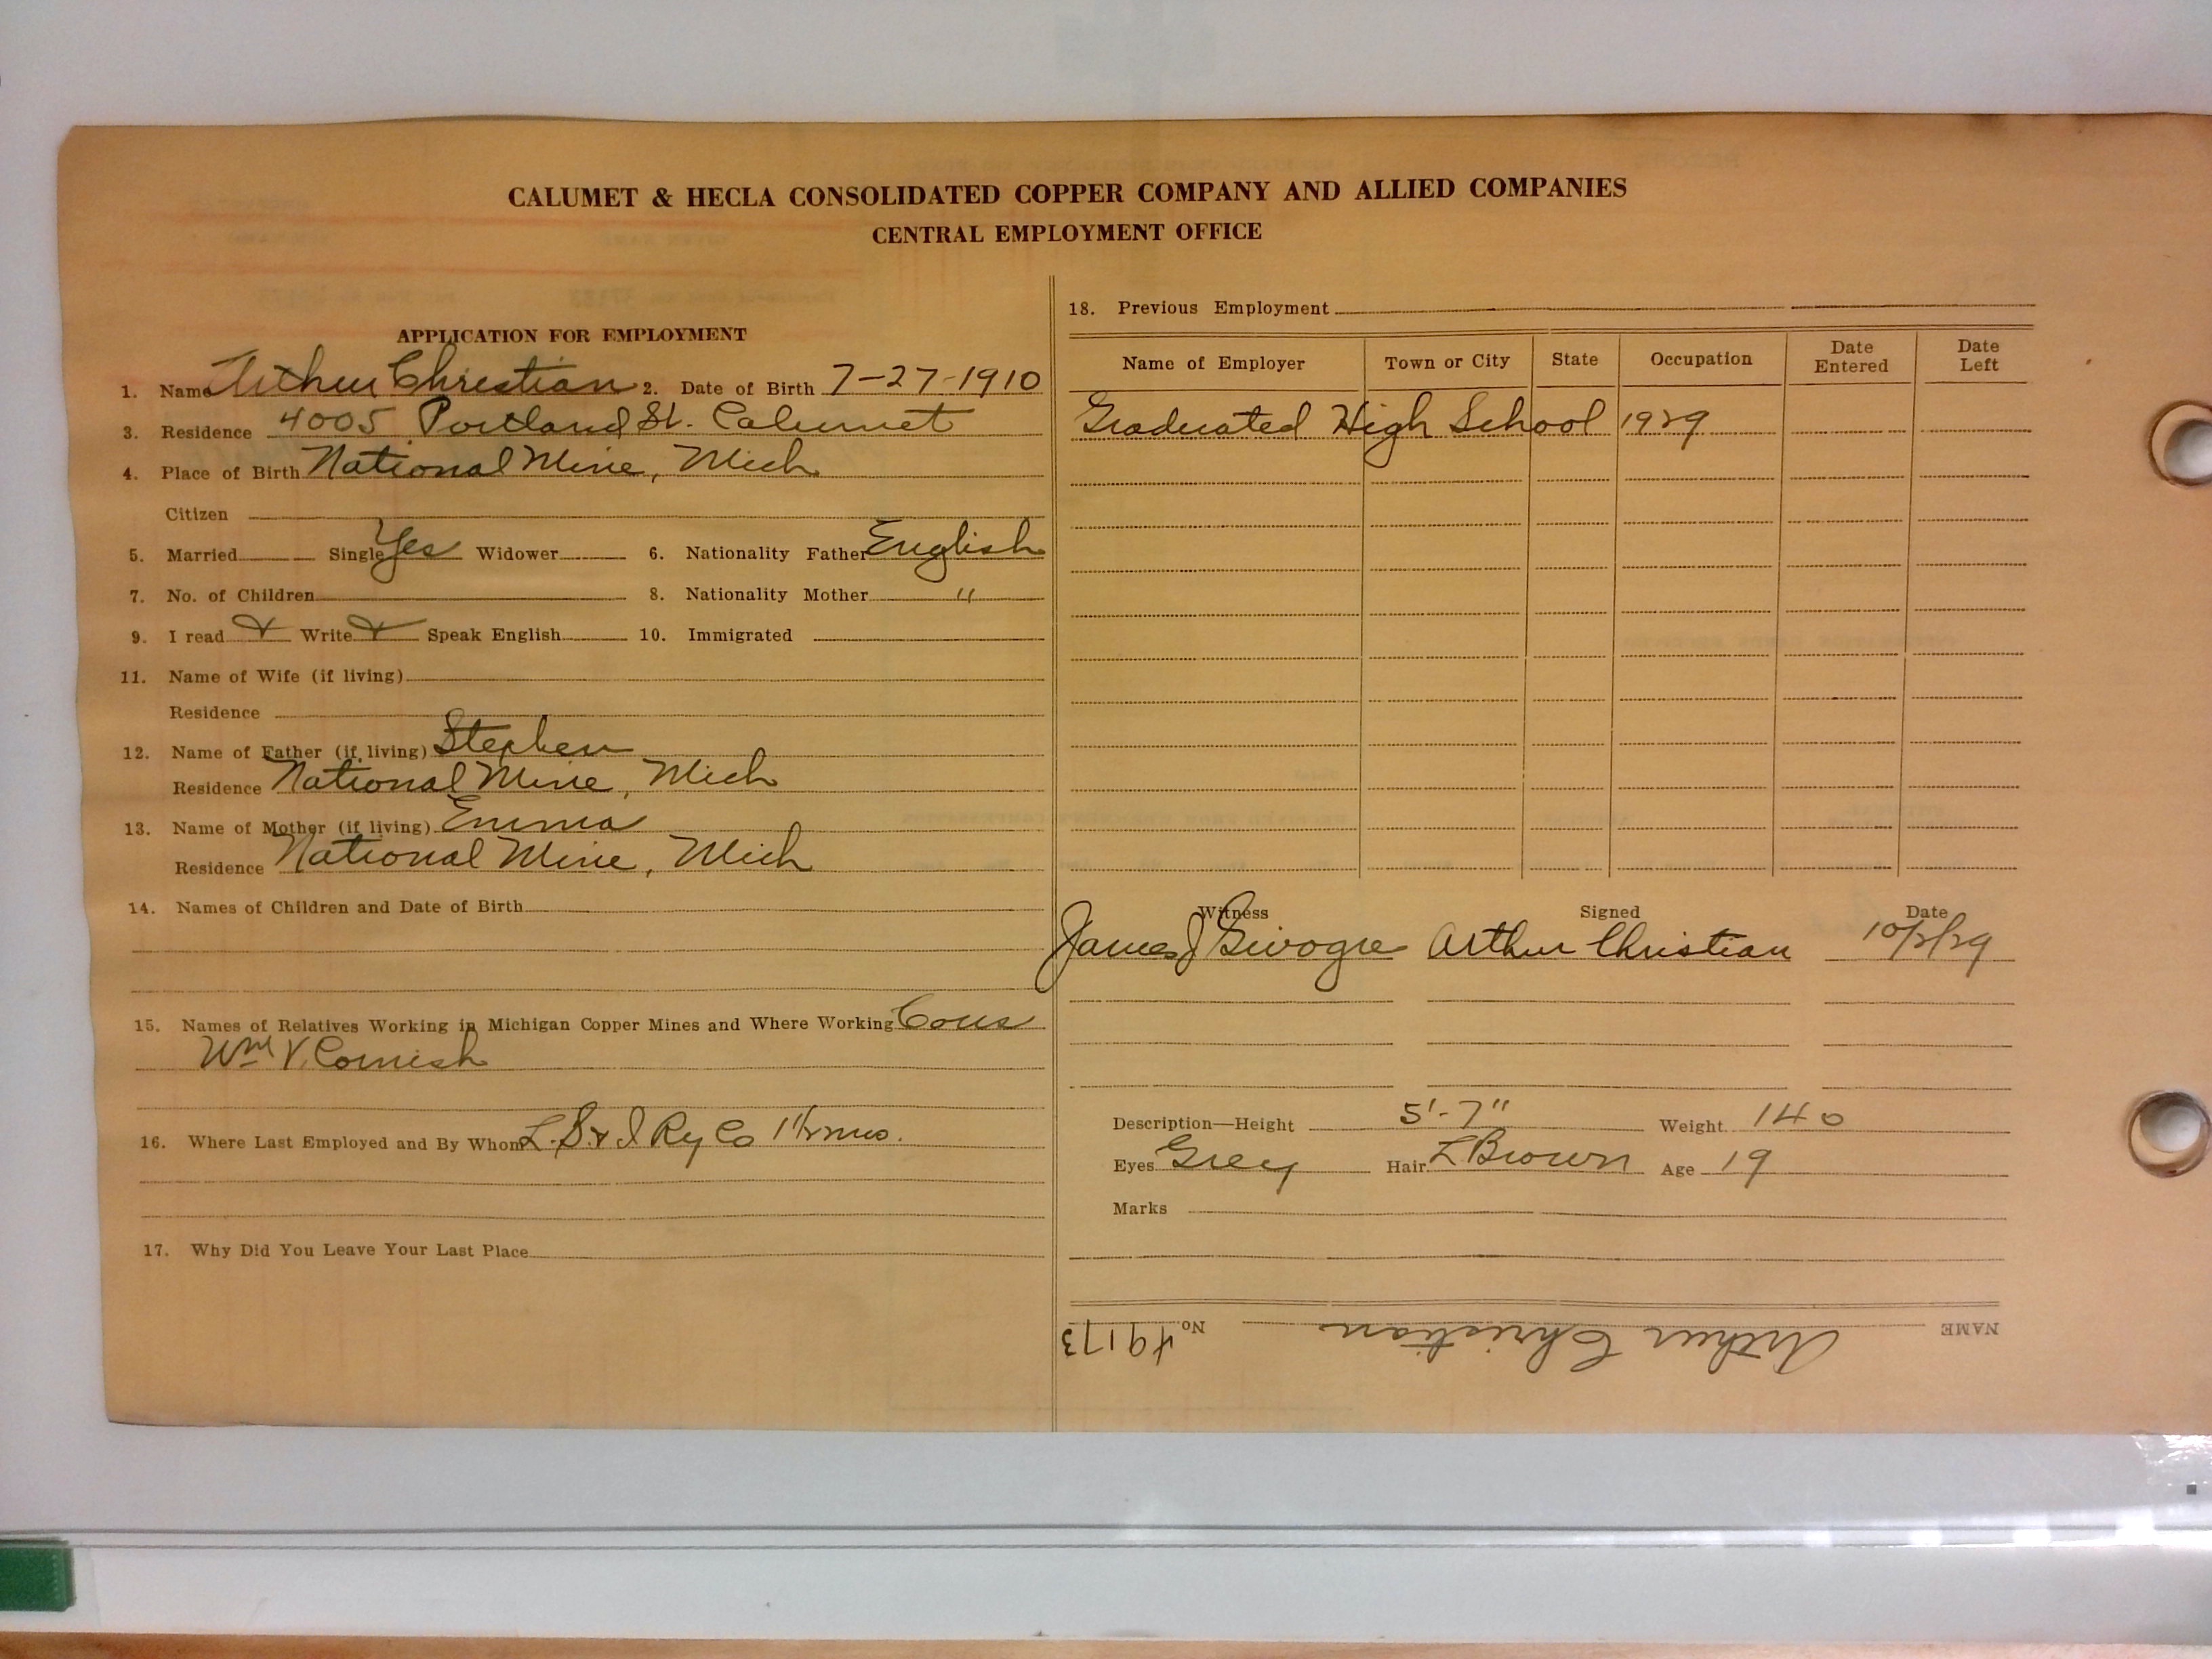 CALUMET & HECLA CONSOLIDATED COPPER COMPANY AND ALLIED COMPANIES
CENTRAL EMPLOYMENT OFFICE
APPLICATION FOR EMPLOYMENT
1. Name Arthur Christian 2. Date of Birth 7-27-1910
3. Residence 4005 Portland St. Calumet
4. Place of Birth National Mine, Mich
Citizen
5. Married Single Yes Widower 6. Nationality Father English
7. No. of Children 8. Nationality Mother "
9. I read Write Speak English 10. Immigrated
11. Name of Wife (if living)
Residence
12. Name of Father (if living) Stephen
Residence National Mine, Mich
13. Name of Mother (if living) Emma
Residence National Mine, Mich
14. Names of Children and Date of Birth
15. Names of Relatives Working in Michigan Copper Mines and Where Working Cous
Wm V. Cornish
16. Where Last Employed and By Whom L.S & I Ry Co 1 1/2 mos.
17. Why Did You Leave Your Last Place
18. Previous Employment
Name of Employer Town or City State Occupation Date Entered Date Left
Graduated High School 1929
Witness Signed Date
James J Arthur Christian 10/2/29
Description—Height 5'-7" Weight 140
Eyes Grey Hair L Brown Age 19
Marks
NAME Arthur Christian No. 49173